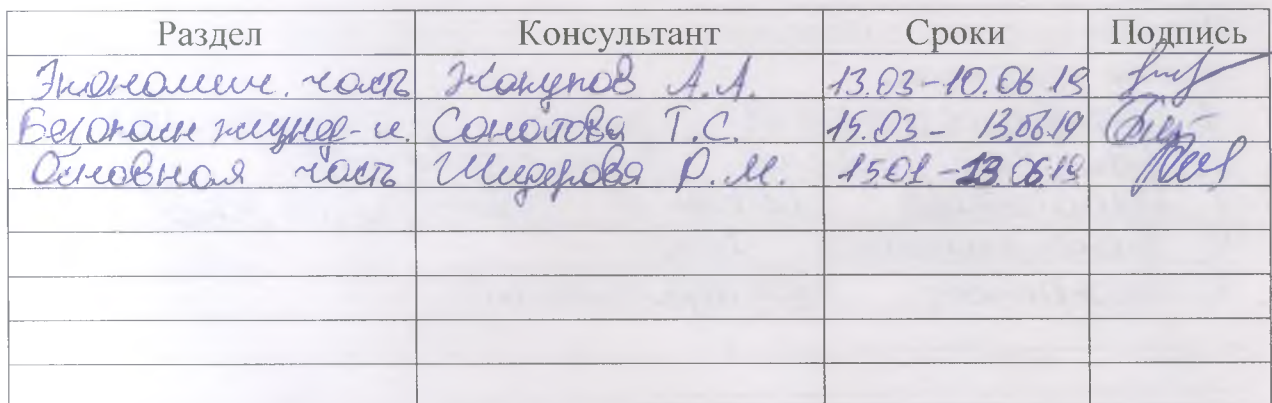 Раздел Консультант Сроки Подпись
Экономич. часть Жакупов А.А. 13.03-10.06.19
Безопасн жизнед-и. Т.С. 15.03 - 13.06.19
Основная часть Шидерова Р.М. 15.01-13.06.19